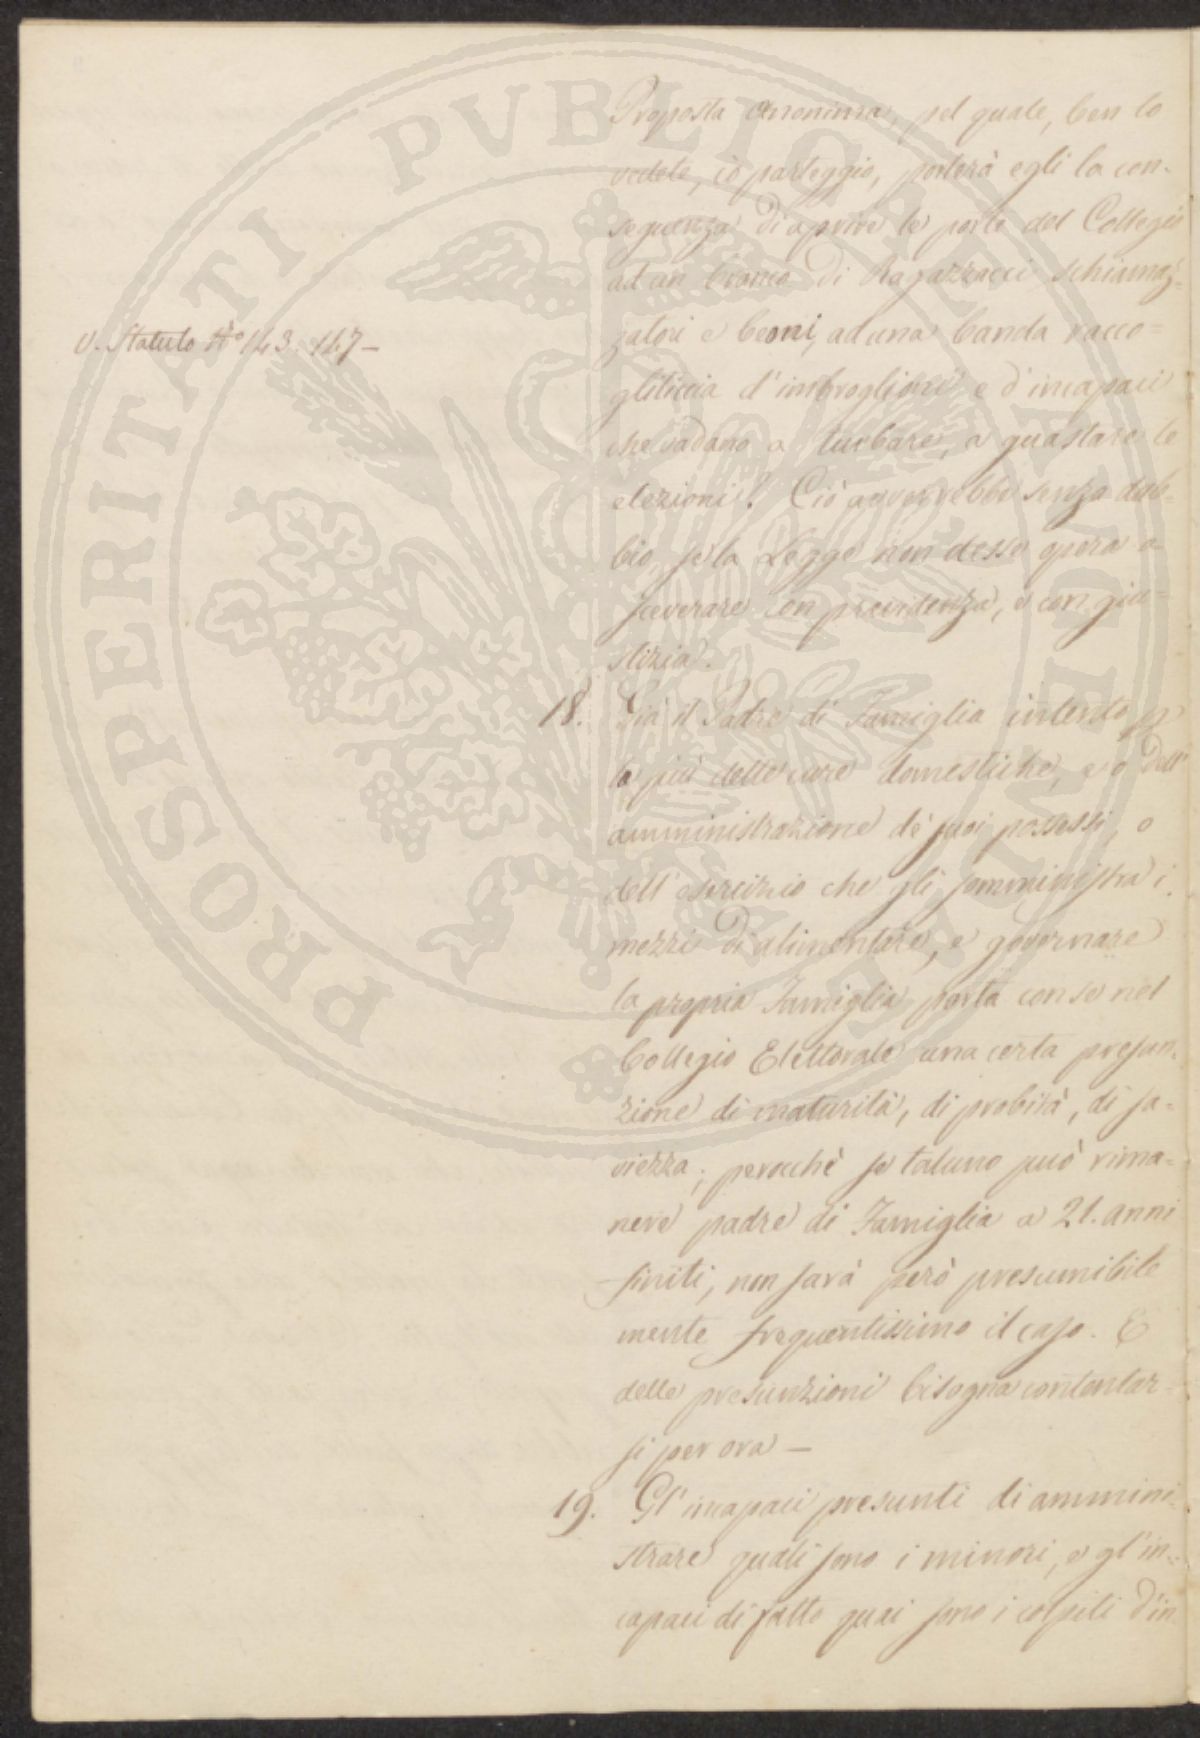 Proposta anonima, pel quale, ben lo
vedete, io parteggio, porterà egli la con-
seguenza di aprire le porte del Collegio
ad un branco di Ragazzacci schiamaz-
v. Statuto No 143. 147 –
zatori e beoni, ad una banda racco=
gliticcia d'imbroglioni e d'incapaci
che vadano a turbare, a guastare le
elezioni? Ciò avverrebbe senza dub-
bio, se la Legge non desse opera a
sceverare con previdenza, e con giu-
stizia.
18. Già il Padre di Famiglia intento p
lo più delle cure domestiche, o dell'
amministrazione de' suoi possessi, o
dell' esercizio che gli somministra i
mezzi di alimentare, e governare
la propria Famiglia porta con se nel
Collegio Elettorale una certa presun-
zione di maturità, di probità, di sa-
viezza; perocchè se taluno può rima=
nere padre di Famiglia a 21. anni
finiti, non sarà però presumibile
mente frequentissimo il caso. E
delle presunzioni bisogna contentar-
si per ora –
19. Gl' incapaci presunti di ammini-
strare quali sono i minori, e gl' in-
capaci di fatto quai sono i colpiti d'in
PROSPERITATI PVBLICAE AVGENDAE